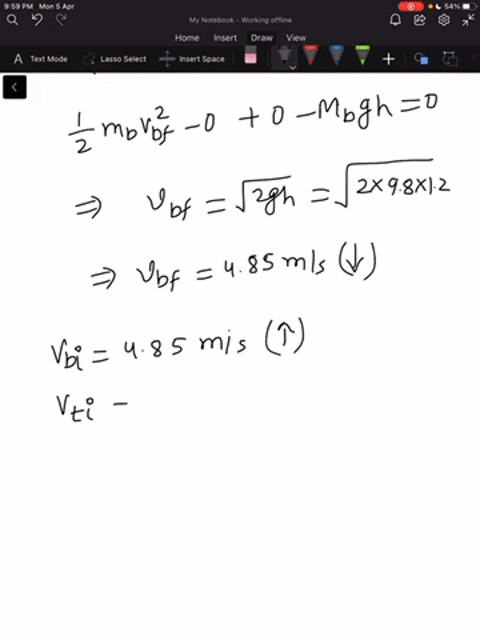 9:59 PM Mon 5 Apr
54%
My Notebook - Working offline
Home Insert Draw View
Text Mode Lasso Select Insert Space
1/2 m_b v_bf^2 - 0 + 0 - M_b g h = 0
⇒ v_bf = √2gh = √2×9.8×1.2
⇒ v_bf = 4.85 m/s (↓)
V_bi = 4.85 m/s (↑)
V_ti -